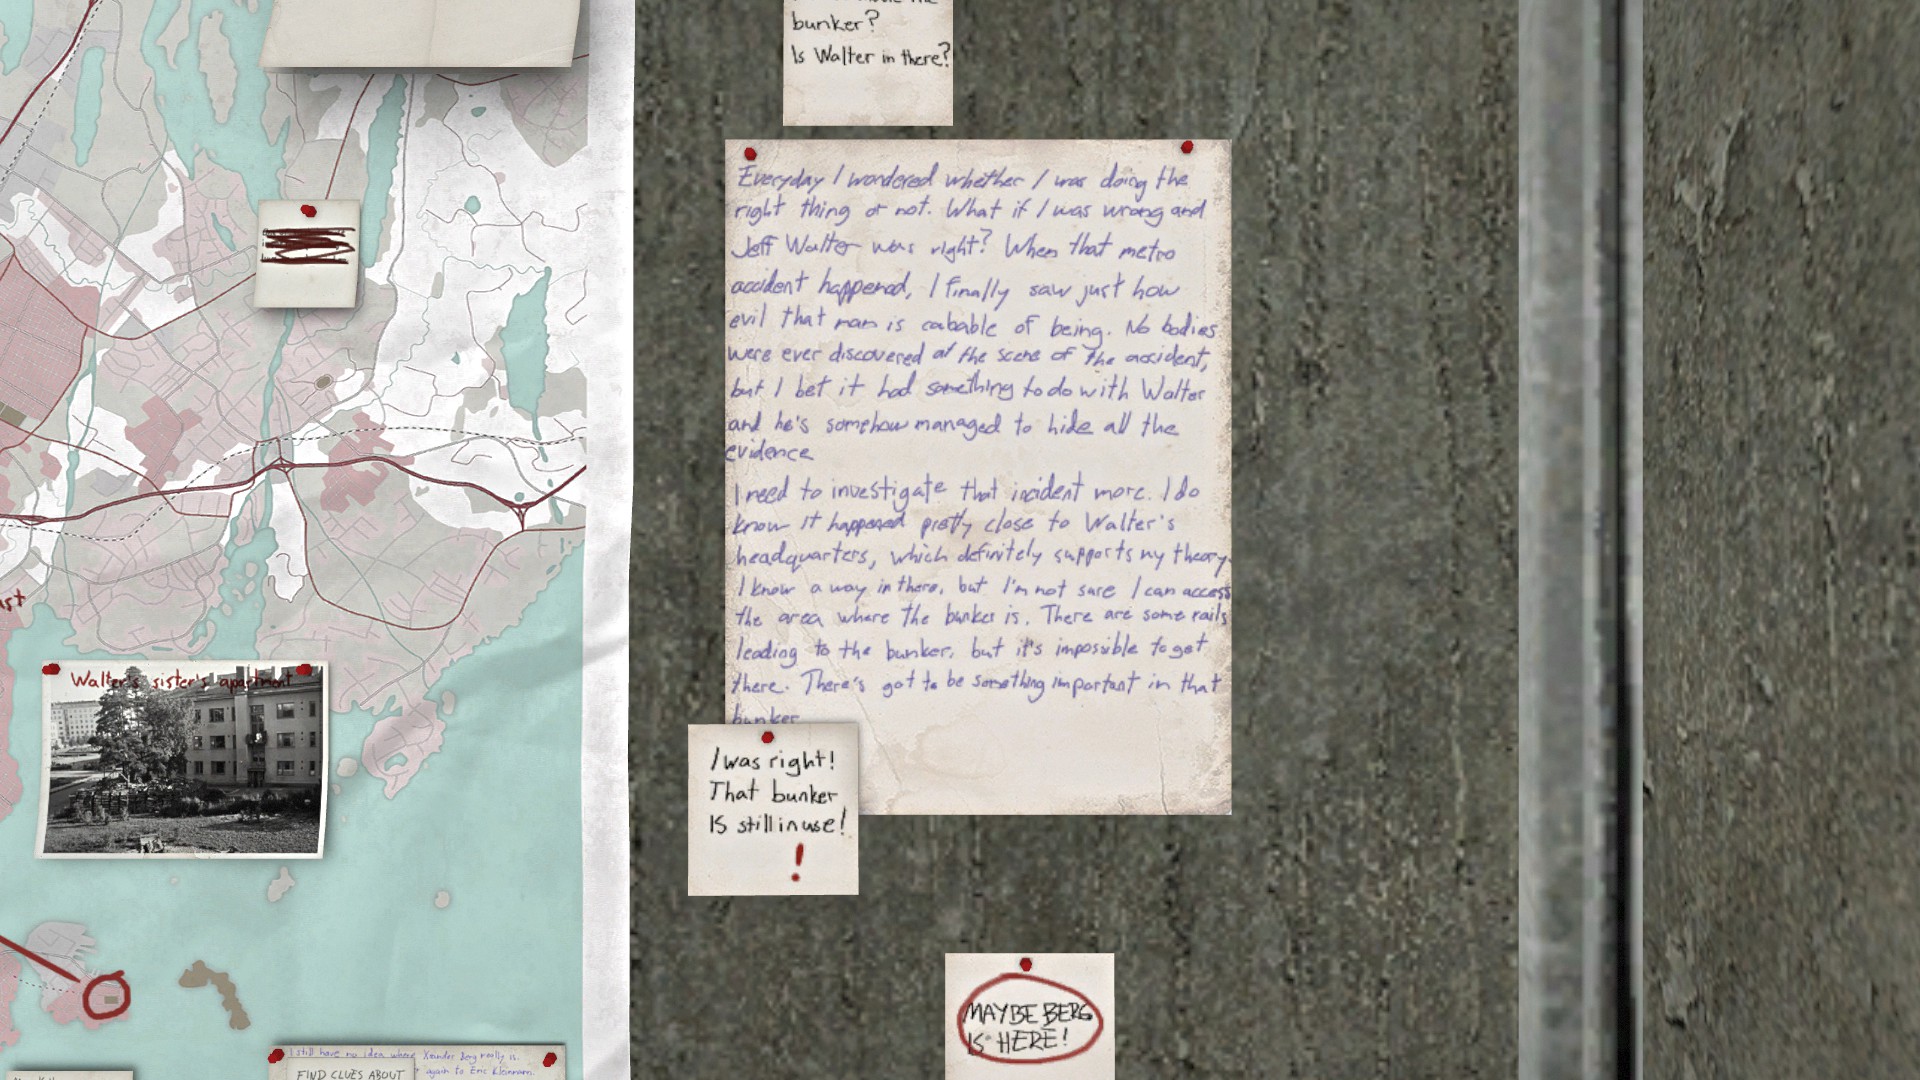 bunker?
Is Walter in there?
Everyday I wondered whether I was doing the
right thing or not. What if I was wrong and
Jeff Walter was right? When that metro
accident happened, I finally saw just how
evil that man is cabable of being. No bodies
were ever discovered at the scene of the accident,
but I bet it had something to do with Walter
and he's somehow managed to hide all the
evidence
I need to investigate that incident more. I do
know it happened pretty close to Walter's
headquarters, which definitely supports my theory.
I know a way in there, but I'm not sure I can access
the area where the bunker is. There are some rails
leading to the bunker, but it's impossible to get
there. There's got to be something important in that
bunker
I was right!
That bunker
IS still in use!
!
Walter's sister's apartment
MAYBE BERG
IS HERE!
I still have no idea where Xander Berg really is.
again to Eric Kleinmann.
FIND CLUES ABOUT